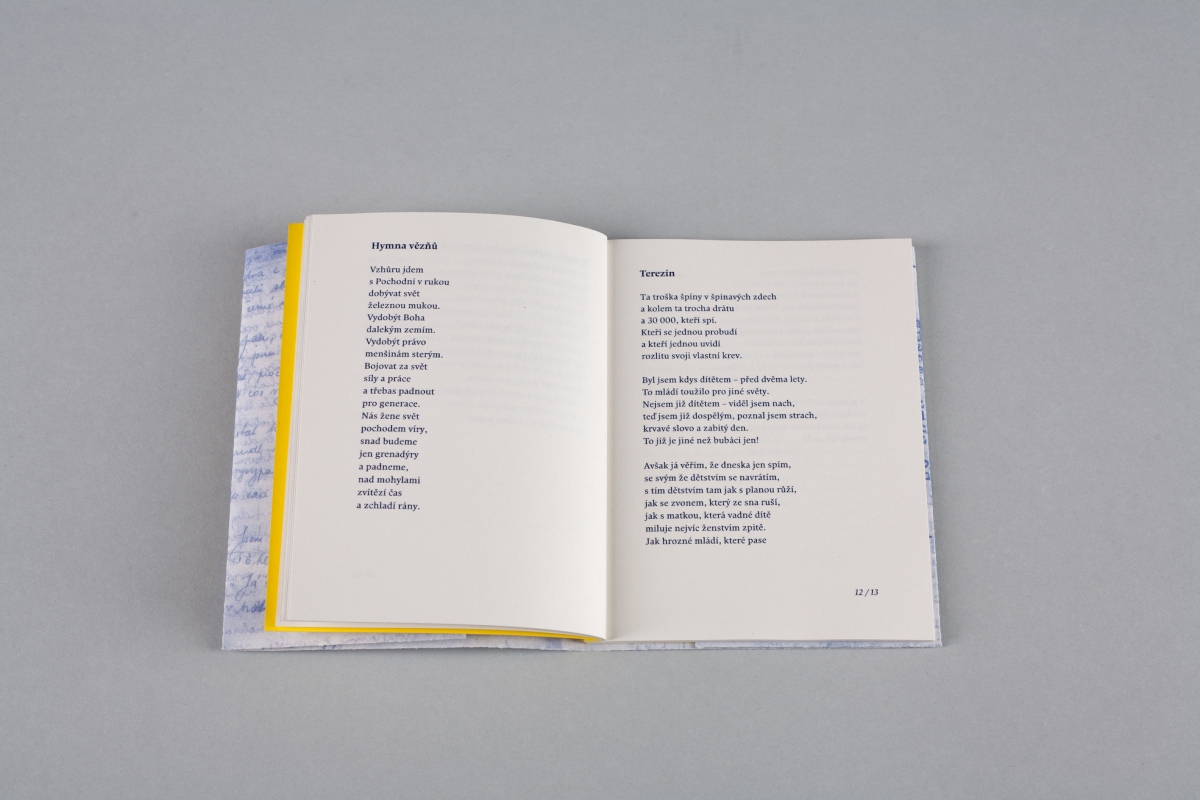 Hymna vězňů
Vzhůru jdem
s Pochodní v rukou
dobývat svět
železnou mukou.
Vydobýt Boha
dalekým zemím.
Vydobýt právo
menšinám sterým.
Bojovat za svět
síly a práce
a třebas padnout
pro generace.
Nás žene svět
pochodem víry,
snad budeme
jen grenadýry
a padneme,
nad mohylami
zvítězí čas
a zchladí rány.
Terezín
Ta troška špíny v špinavých zdech
a kolem ta trocha drátu
a 30 000, kteří spí.
Kteří se jednou probudí
a kteří jednou uvidí
rozlitu svoji vlastní krev.
Byl jsem kdys dítětem – před dvěma lety.
To mládí toužilo pro jiné světy.
Nejsem již dítětem – viděl jsem nach,
teď jsem již dospělým, poznal jsem strach,
krvavé slovo a zabitý den.
To již je jiné než bubáci jen!
Avšak já věřím, že dneska jen spím,
se svým že dětstvím se navrátím,
s tím dětstvím tam jak s planou růží,
jak se zvonem, který ze sna ruší,
jak s matkou, která vadné dítě
miluje nejvíc ženstvím zpitě.
Jak hrozné mládí, které pase
12 / 13